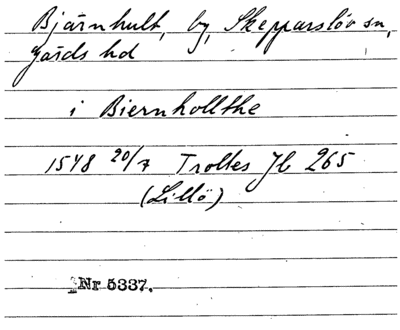 Bjärnhult, by, Skepparslöv sn,
Gärds hd
i Biernhollthe
1548 20/7 Trolles Jb 265
(Lillö)
Nr 5337.